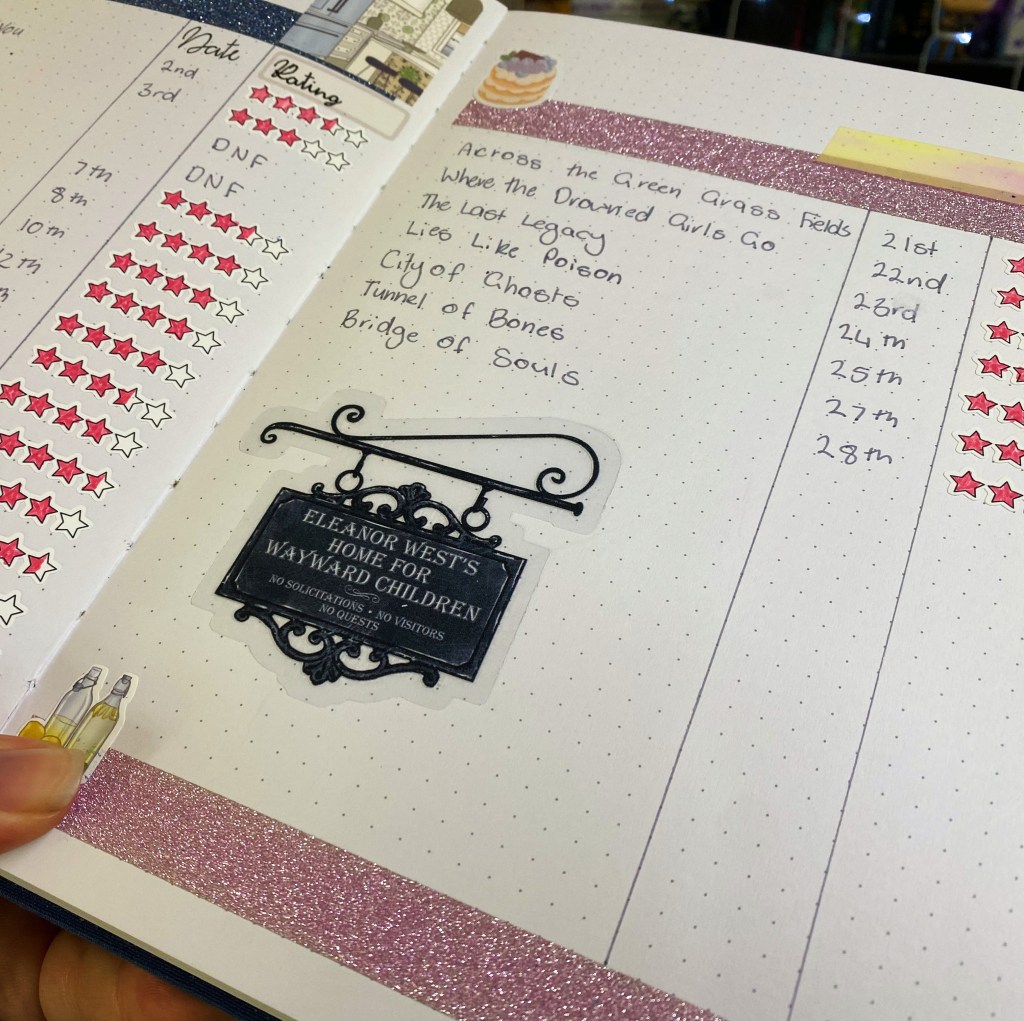 You
Date
Rating
2nd
3rd
DNF
DNF
7th
8th
10th
12th
Across the Green Grass Fields 21st
Where the Drowned Girls Go 22nd
The Last Legacy 23rd
Lies Like Poison 24th
City of Ghosts 25th
Tunnel of Bones 27th
Bridge of Souls 28th
ELEANOR WEST'S
HOME FOR
WAYWARD CHILDREN
NO SOLICITATIONS • NO VISITORS
NO QUESTS